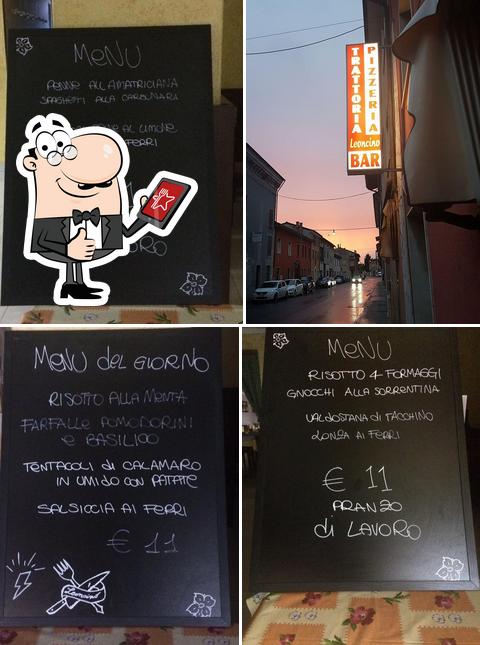 MENU
PENNE ALL AMATRICIANA
SPAGHETI ALLA CARBONARA
AL LIMONE
FERRI
TRATTORIA
PIZZERIA
Leoncino
BAR
MENU del GIORNO
RISOTTO ALLA MENTA
FARFALLE POMODORINI
e BASILICO
TENTACOLI di CALAMARO
IN UMIDO CON PATATE
SALSICCIA AI FERRI
€ 11
Leoncino
MENU
RISOTTO 4 FORMAGGI
GNOCCHI ALLA SORRENTINA
VALDOSTANA di TACCHINO
LONZA AI FERRI
€ 11
PRANZO
di LAVORO